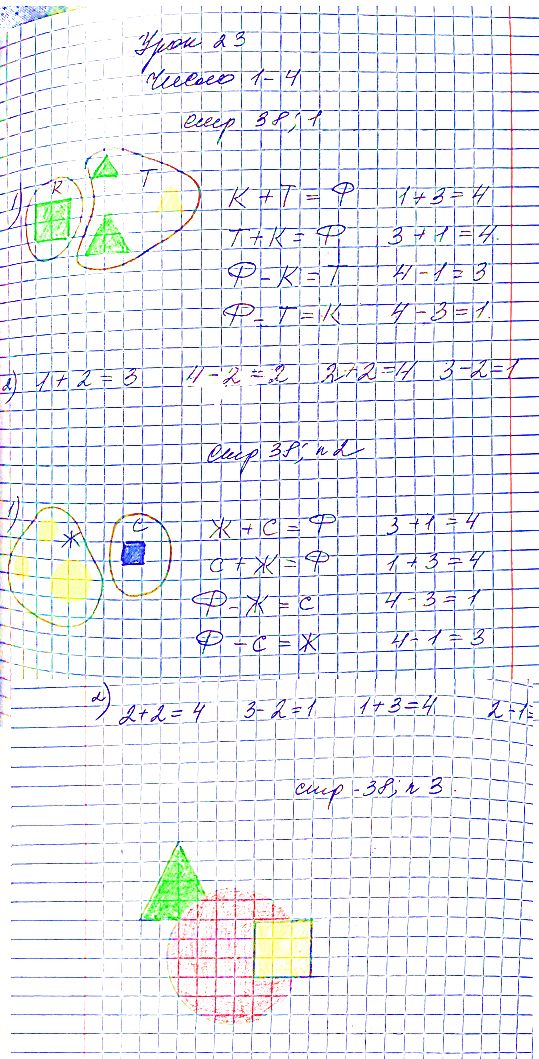 Урок 23
Число 1-4
стр 38; 1
1) К Т К + Т = Ф 1+3=4
Т+К=Ф 3+1=4
Ф-К=Т 4-1=3
Ф-Т=К 4-3=1
2) 1+2=3 4-2=2 2+2=4 3-2=1
стр 38; п 2
1) Ж С Ж + С = Ф 3+1=4
С+Ж=Ф 1+3=4
Ф-Ж=С 4-3=1
Ф-С=Ж 4-1=3
2) 2+2=4 3-2=1 1+3=4 2-1=
стр-38; п 3.